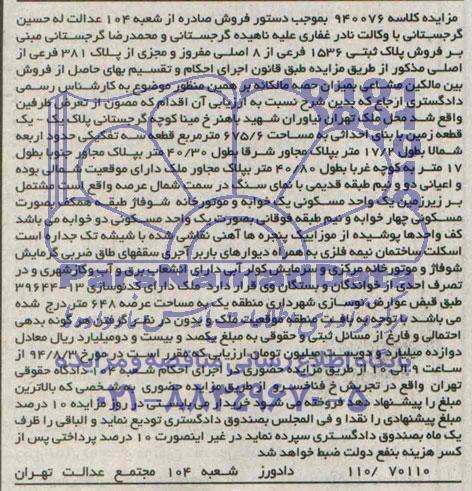 مزایده کلاسه ۹۴۰۰۷۶ بموجب دستور فروش صادره از شعبه ۱۰۴ عدالت له حسین
گرجستانی با وکالت نادر غفاری علیه ناهیده گرجستانی و محمدرضا گرجستانی مبنی
بر فروش پلاک ثبتی ۱۵۳۶ فرعی از ۸ اصلی مفروز و مجزی از پلاک ۳۸۱ فرعی از
اصلی مذکور از طریق مزایده طبق قانون اجرای احکام و تقسیم بهای حاصل از فروش
بین مالکین مشاعی بمیزان حصه مالکانه بر همین منظور موضوع به کارشناس رسمی
دادگستری ارجاع که بدین شرح نسبت به ارزیابی آن اقدام که مصون از تعرض طرفین
واقع شد محل ملک تهران نیاوران شهید باهنر خ مینا کوچه گرجستانی پلاک یک - یک
قطعه زمین با بنای احداثی به مساحت ۶۷۵/۶ مترمربع قطعه تفکیکی حدود اربعه
شمالا بطول ۱۷/۲ متر بپلاک مجاور شرقا بطول ۴۰/۳۰ متر بپلاک مجاور جنوبا بطول
۱۷ متر به کوچه غربا بطول ۴۰/۸۰ متر بپلاک مجاور ملک دارای موقعیت شمالی بوده
و اعیانی دو و نیم طبقه قدیمی با نمای سنگ در سمت شمال عرصه واقع است مشتمل
بر زیرزمین یک واحد مسکونی یک خوابه و موتورخانه شوفاژ طبقه همکف بصورت
مسکونی چهار خوابه و نیم طبقه فوقانی بصورت یک واحد مسکونی دو خوابه می باشد
کف واحدها پوشیده از موزاییک پنجره ها آهنی نقاشی شده با شیشه تک جداره است
اسکلت ساختمان نیمه فلزی به همراه دیوارهای باربر آجری سقفهای طاق ضربی گرمایش
شوفاژ و موتورخانه مرکزی و سرمایش کولر آبی دارای انشعاب برق و آب و گاز شهری و در
تصرف احدی از خواندگان و بستگان وی قرار دارد ملک دارای کدنوسازی ۱۳- ۳۹۶۴۴
طبق قبض عوارض نوسازی شهرداری منطقه یک به مساحت عرصه ۶۴۸ متر درج شده
می باشد با توجه به بافت منطقه موقعیت ملک و بدون در نظر گرفتن هر گونه بدهی
احتمالی و فارغ از مسائل ثبتی و حقوقی به مبلغ یکصد و بیست و دو میلیارد ریال معادل
دوازده میلیارد و دویست میلیون تومان ارزیابی گردید مقرر است در مورخ ۹۴/۸
ساعت ۹ الی ۱۰ از طریق مزایده حضوری در اجرای احکام شعبه ۱۰۴ دادگاه حقوقی
تهران واقع در تجریش خ فناخسرو از طریق مزایده حضوری به شخصی که بالاترین
مبلغ را پیشنهاد دهد فروخته می شود خریدار می بایستی در روز مزایده ۱۰ درصد
مبلغ پیشنهادی را نقدا و فی المجلس بصندوق دادگستری تودیع نماید و الباقی را ظرف
یک ماه بصندوق دادگستری سپرده نماید در غیر اینصورت ۱۰ درصد پرداختی پس از
کسر هزینه بنفع دولت ضبط خواهد شد
۱۱۰/ ۷۰۱۱۰ دادورز شعبه ۱۰۴ مجتمع عدالت تهران
۰۲۱-۸۸۳۴۹۶۷۰-۵